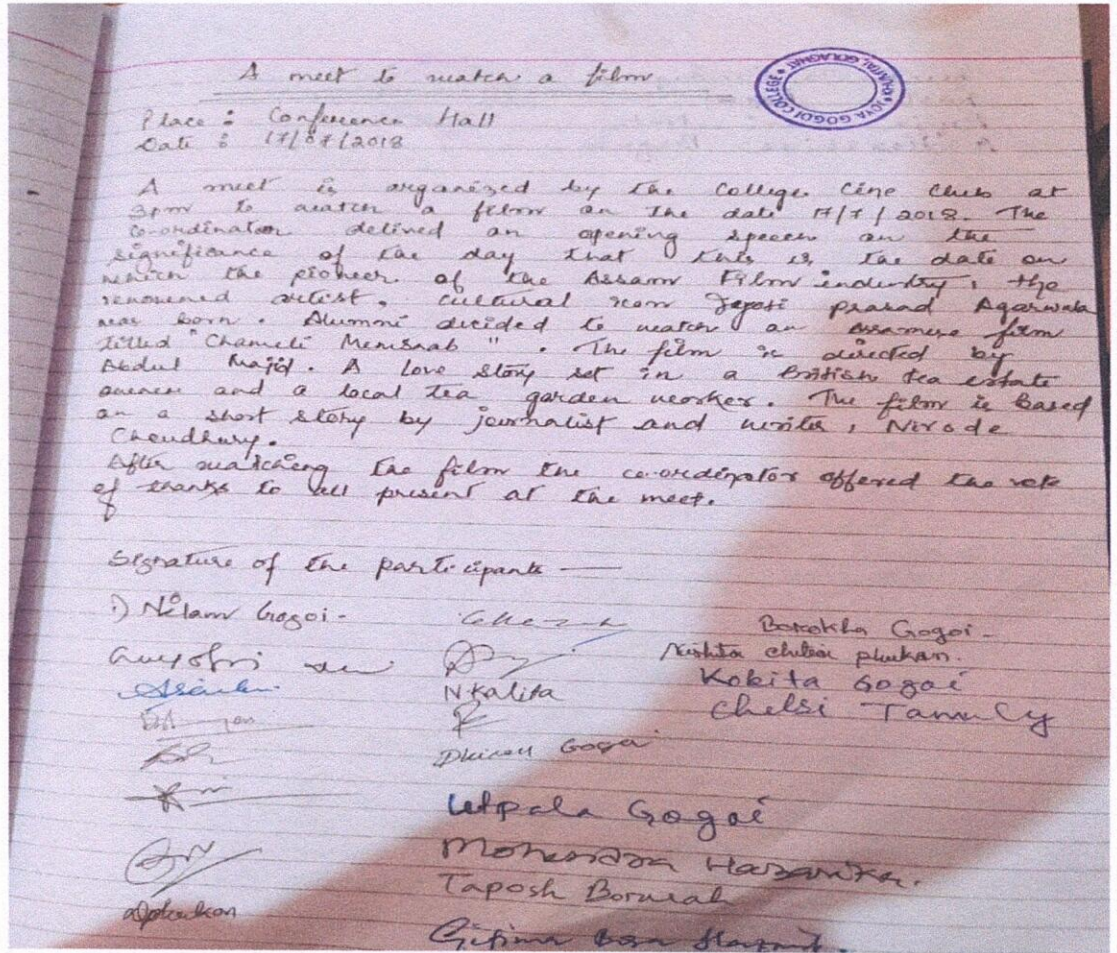 A meet to watch a film
JOYA GOGOI COLLEGE
KHUMTAI, GOLAGHAT
Place : Conference Hall
Date : 17/07/2018
A meet is organized by the College Cine Club at
3pm to watch a film on the date 17/7/2018. The
co-ordinator delived an opening speech on the
significance of the day that this is the date on
which the pioneer of the Assam Film industry, the
renowned artist, cultural icon Jyoti prasad Agarwala
was born. Alumni decided to watch an Assamese film
titled "Chameli Memsaab". The film is directed by
Abdul Majid. A Love story set in a British tea estate
owner and a local tea garden worker. The film is based
on a short story by journalist and writer, Nirode
Choudhury.
After watching the film the co-ordinator offered the vote
of thanks to all present at the meet.
Signature of the participants —
1) Nilam Gogoi. Borokha Gogoi.
phukan.
NKalita Kobita Gogoi
Chelsi
Gogoi
Utpala Gogoi
Hazarika.
Taposh Boruah